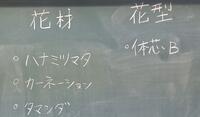 花材
◦ハナミツマタ
◦カーネーション
◦タマシダ
花型
・体芯、B